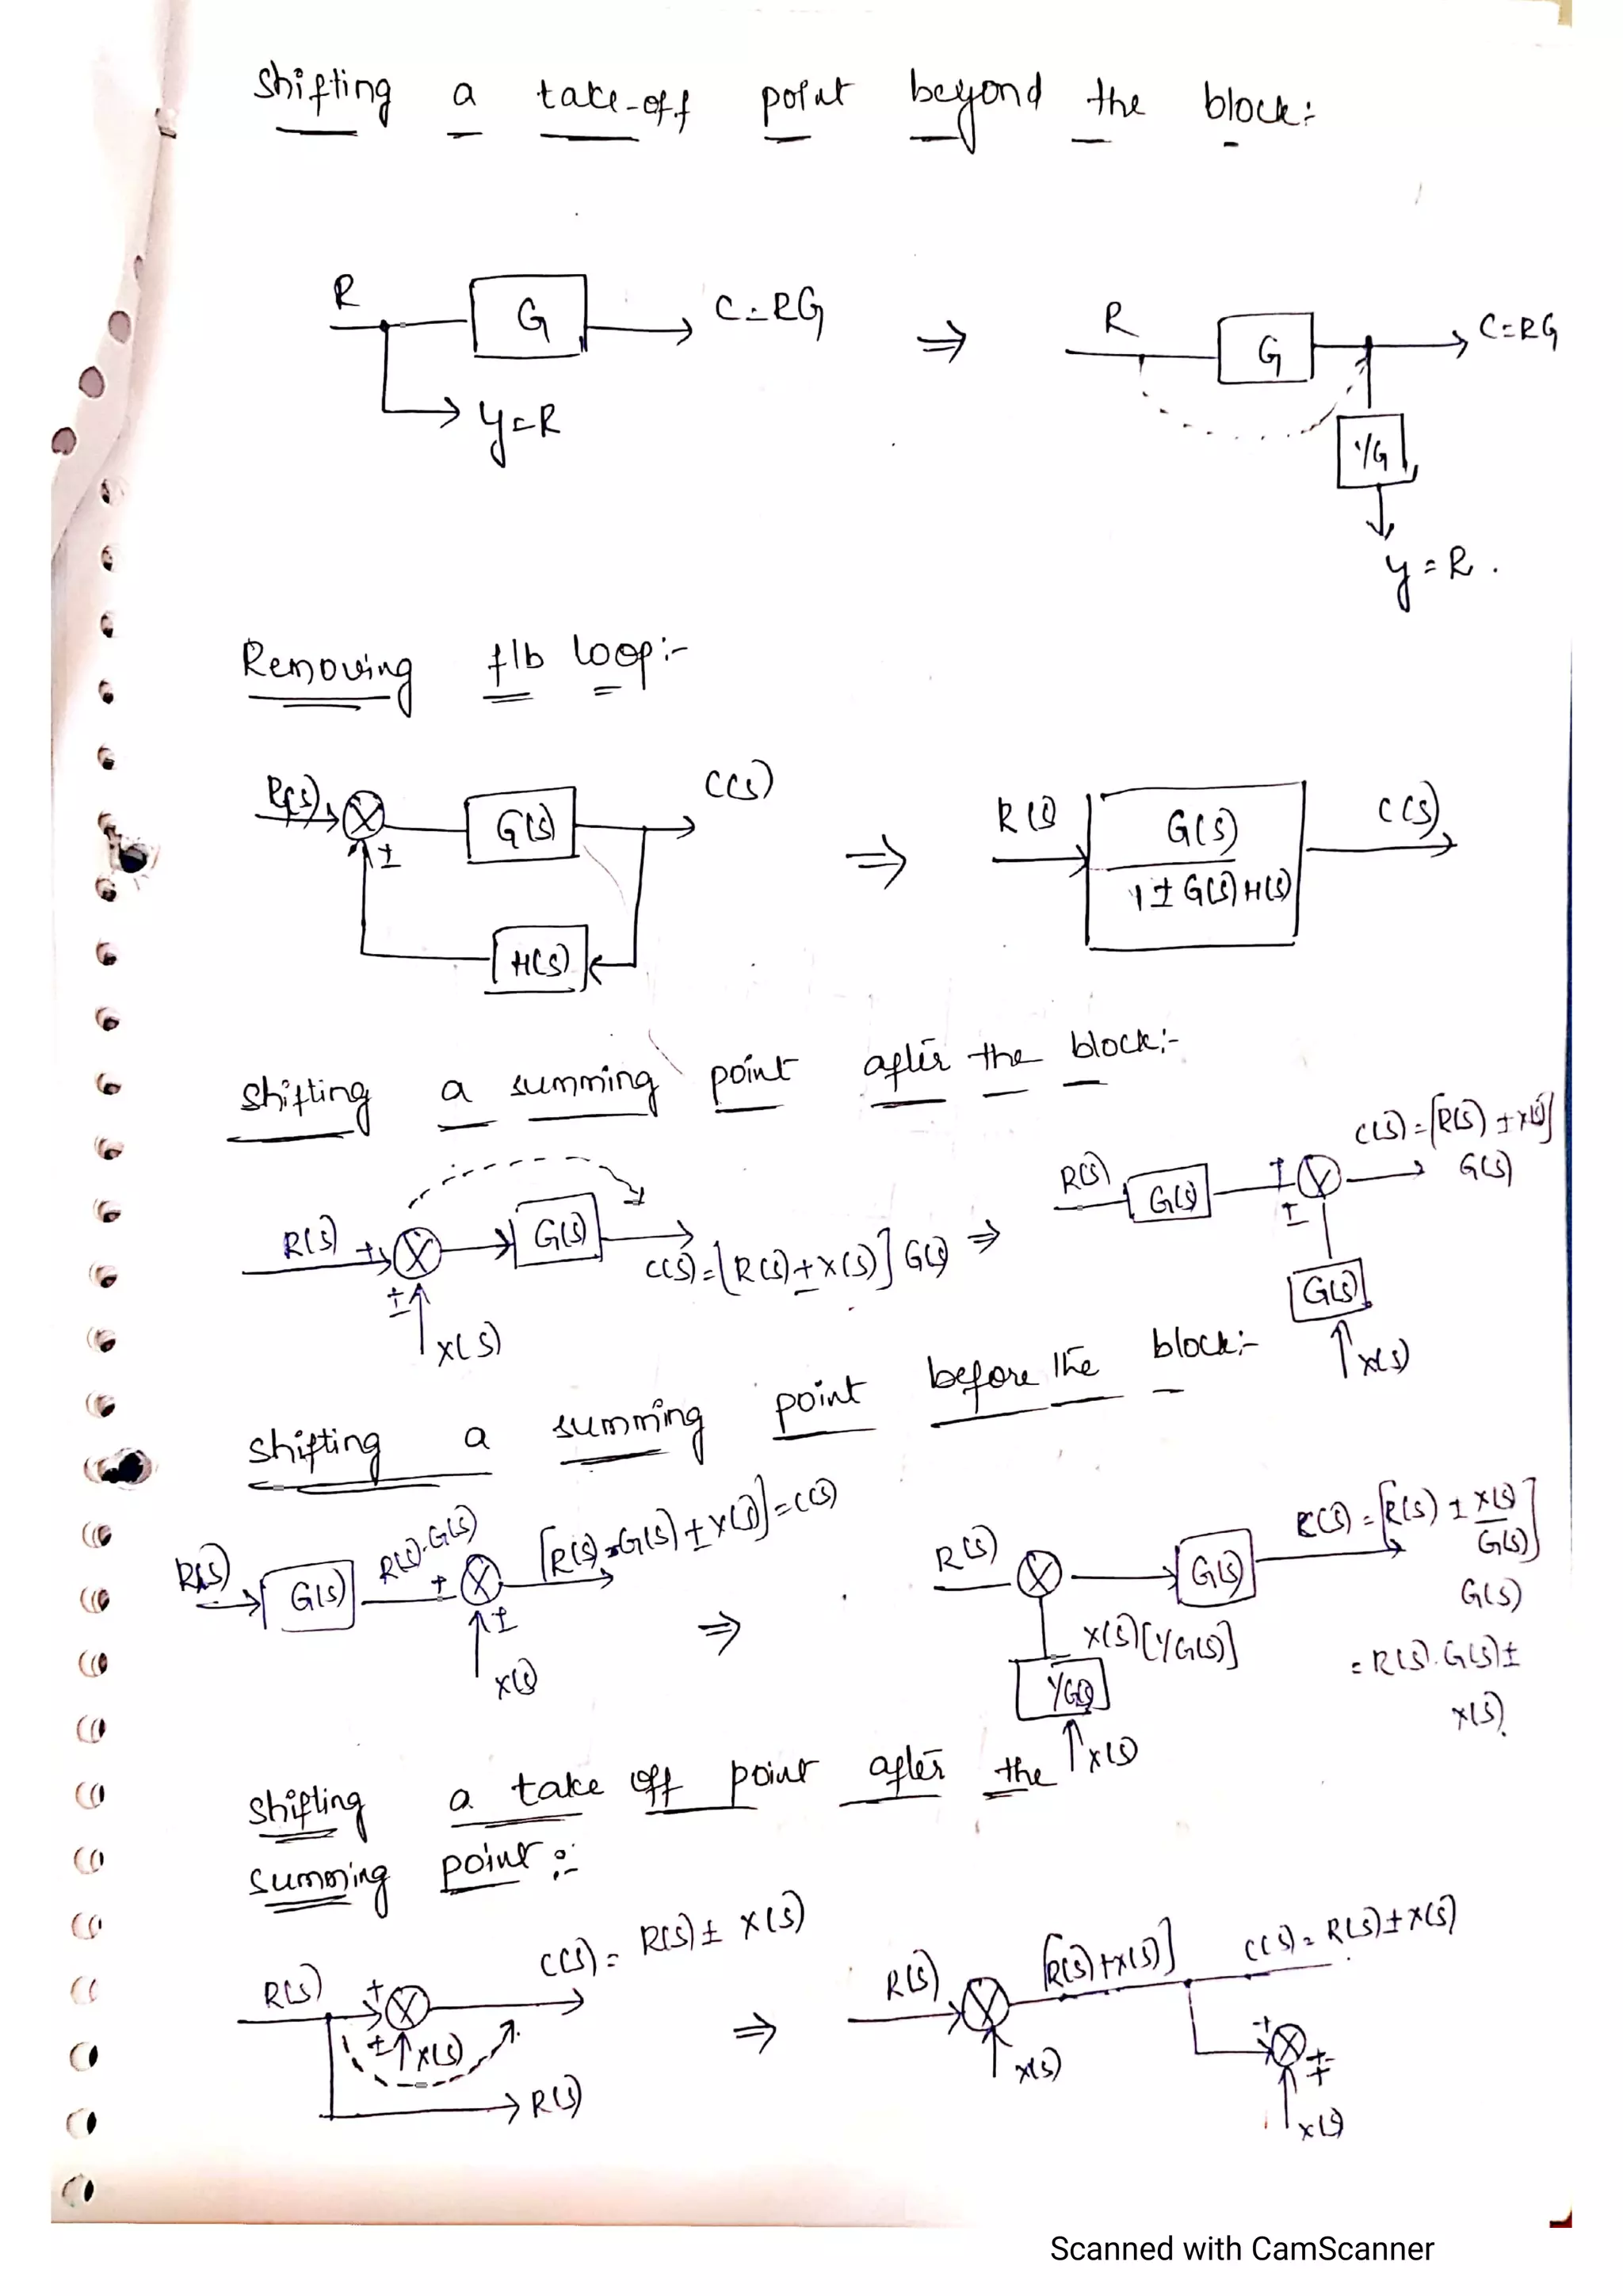 Shifting a take-off point beyond the block:
R G C=RG ⇒ R G C=RG
y=R 1/G
y=R.
Removing f/b loop:-
R(s) ± G(s) C(s) ⇒ R(s) G(s) C(s)
1±G(s)H(s)
H(s)
Shifting a summing point after the block:-
R(s) + G(s) C(s)=[R(s)±X(s)]G(s) ⇒ R(s) G(s) ± C(s)=[R(s)±X(s)]
± ± G(s)
X(s) G(s)
X(s)
Shifting a summing point before the block:-
R(s) G(s) R(s).G(s) + [R(s).G(s)±X(s)]=C(s) R(s) G(s) C(s)=[R(s)±X(s)/G(s)]
± ⇒ X(s)[1/G(s)] G(s)
X(s) 1/G(s) =R(s).G(s)±
X(s) X(s).
Shifting a take off point after the
Summing point:-
R(s) + C(s)=R(s)±X(s) ⇒ R(s) [R(s)+X(s)] C(s)=R(s)±X(s)
± X(s) X(s) + ∓
R(s) X(s)
Scanned with CamScanner